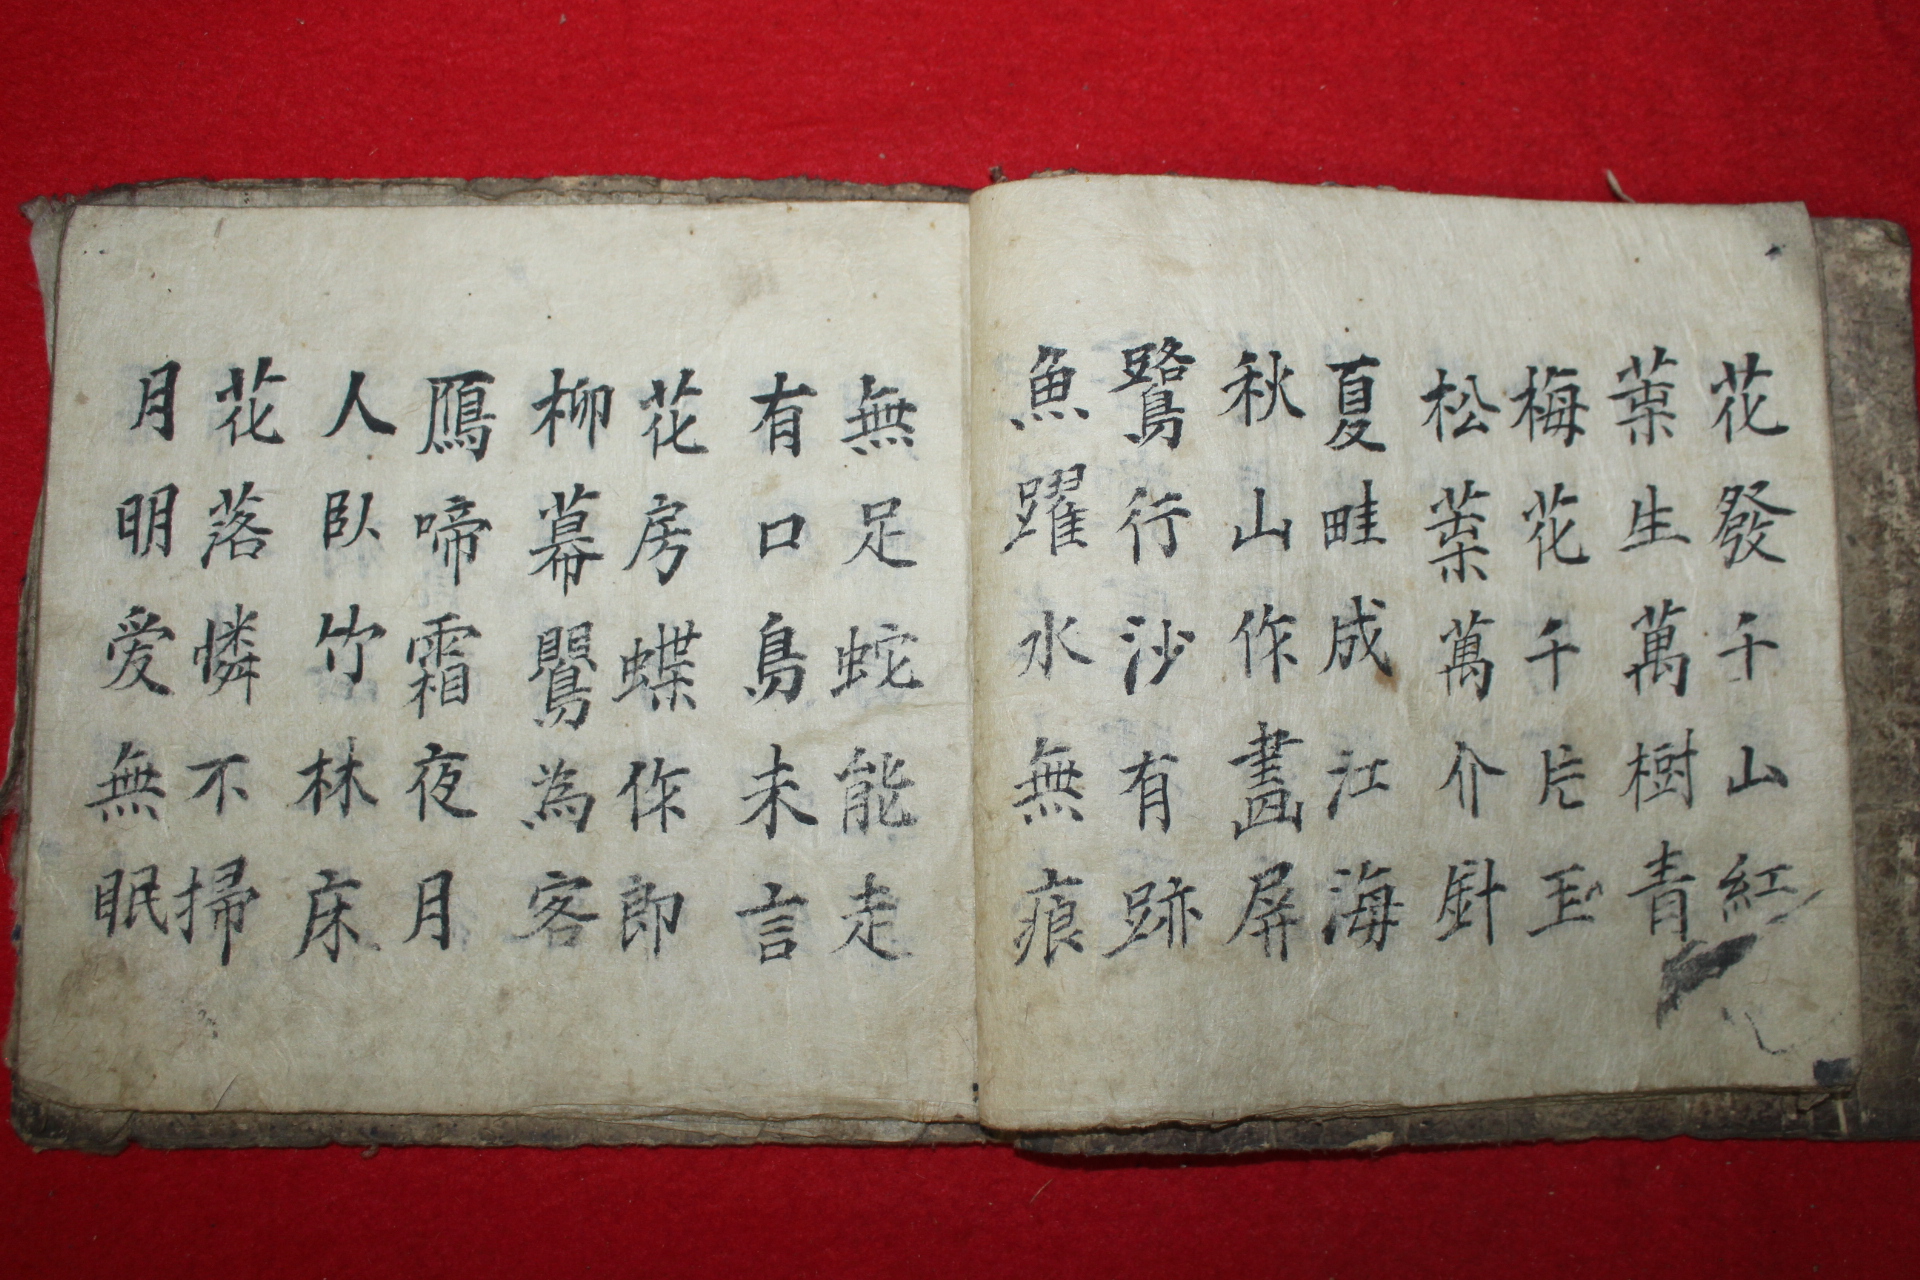 花發千山紅
葉生萬樹青
梅花千片玉
松葉萬介針
夏畦成江海
秋山作畫屏
鷺行沙有跡
魚躍水無痕
無足蛇能走
有口鳥未言
花房蝶作郎
柳幕鷪為客
鴈啼霜夜月
人臥竹林床
花落憐不掃
月明爱無眠